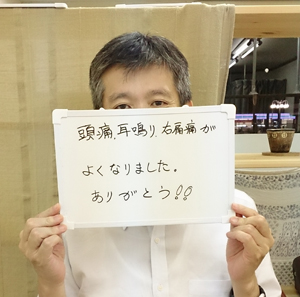 頭痛、耳鳴り、右肩痛が
よくなりました。
ありがとう!!